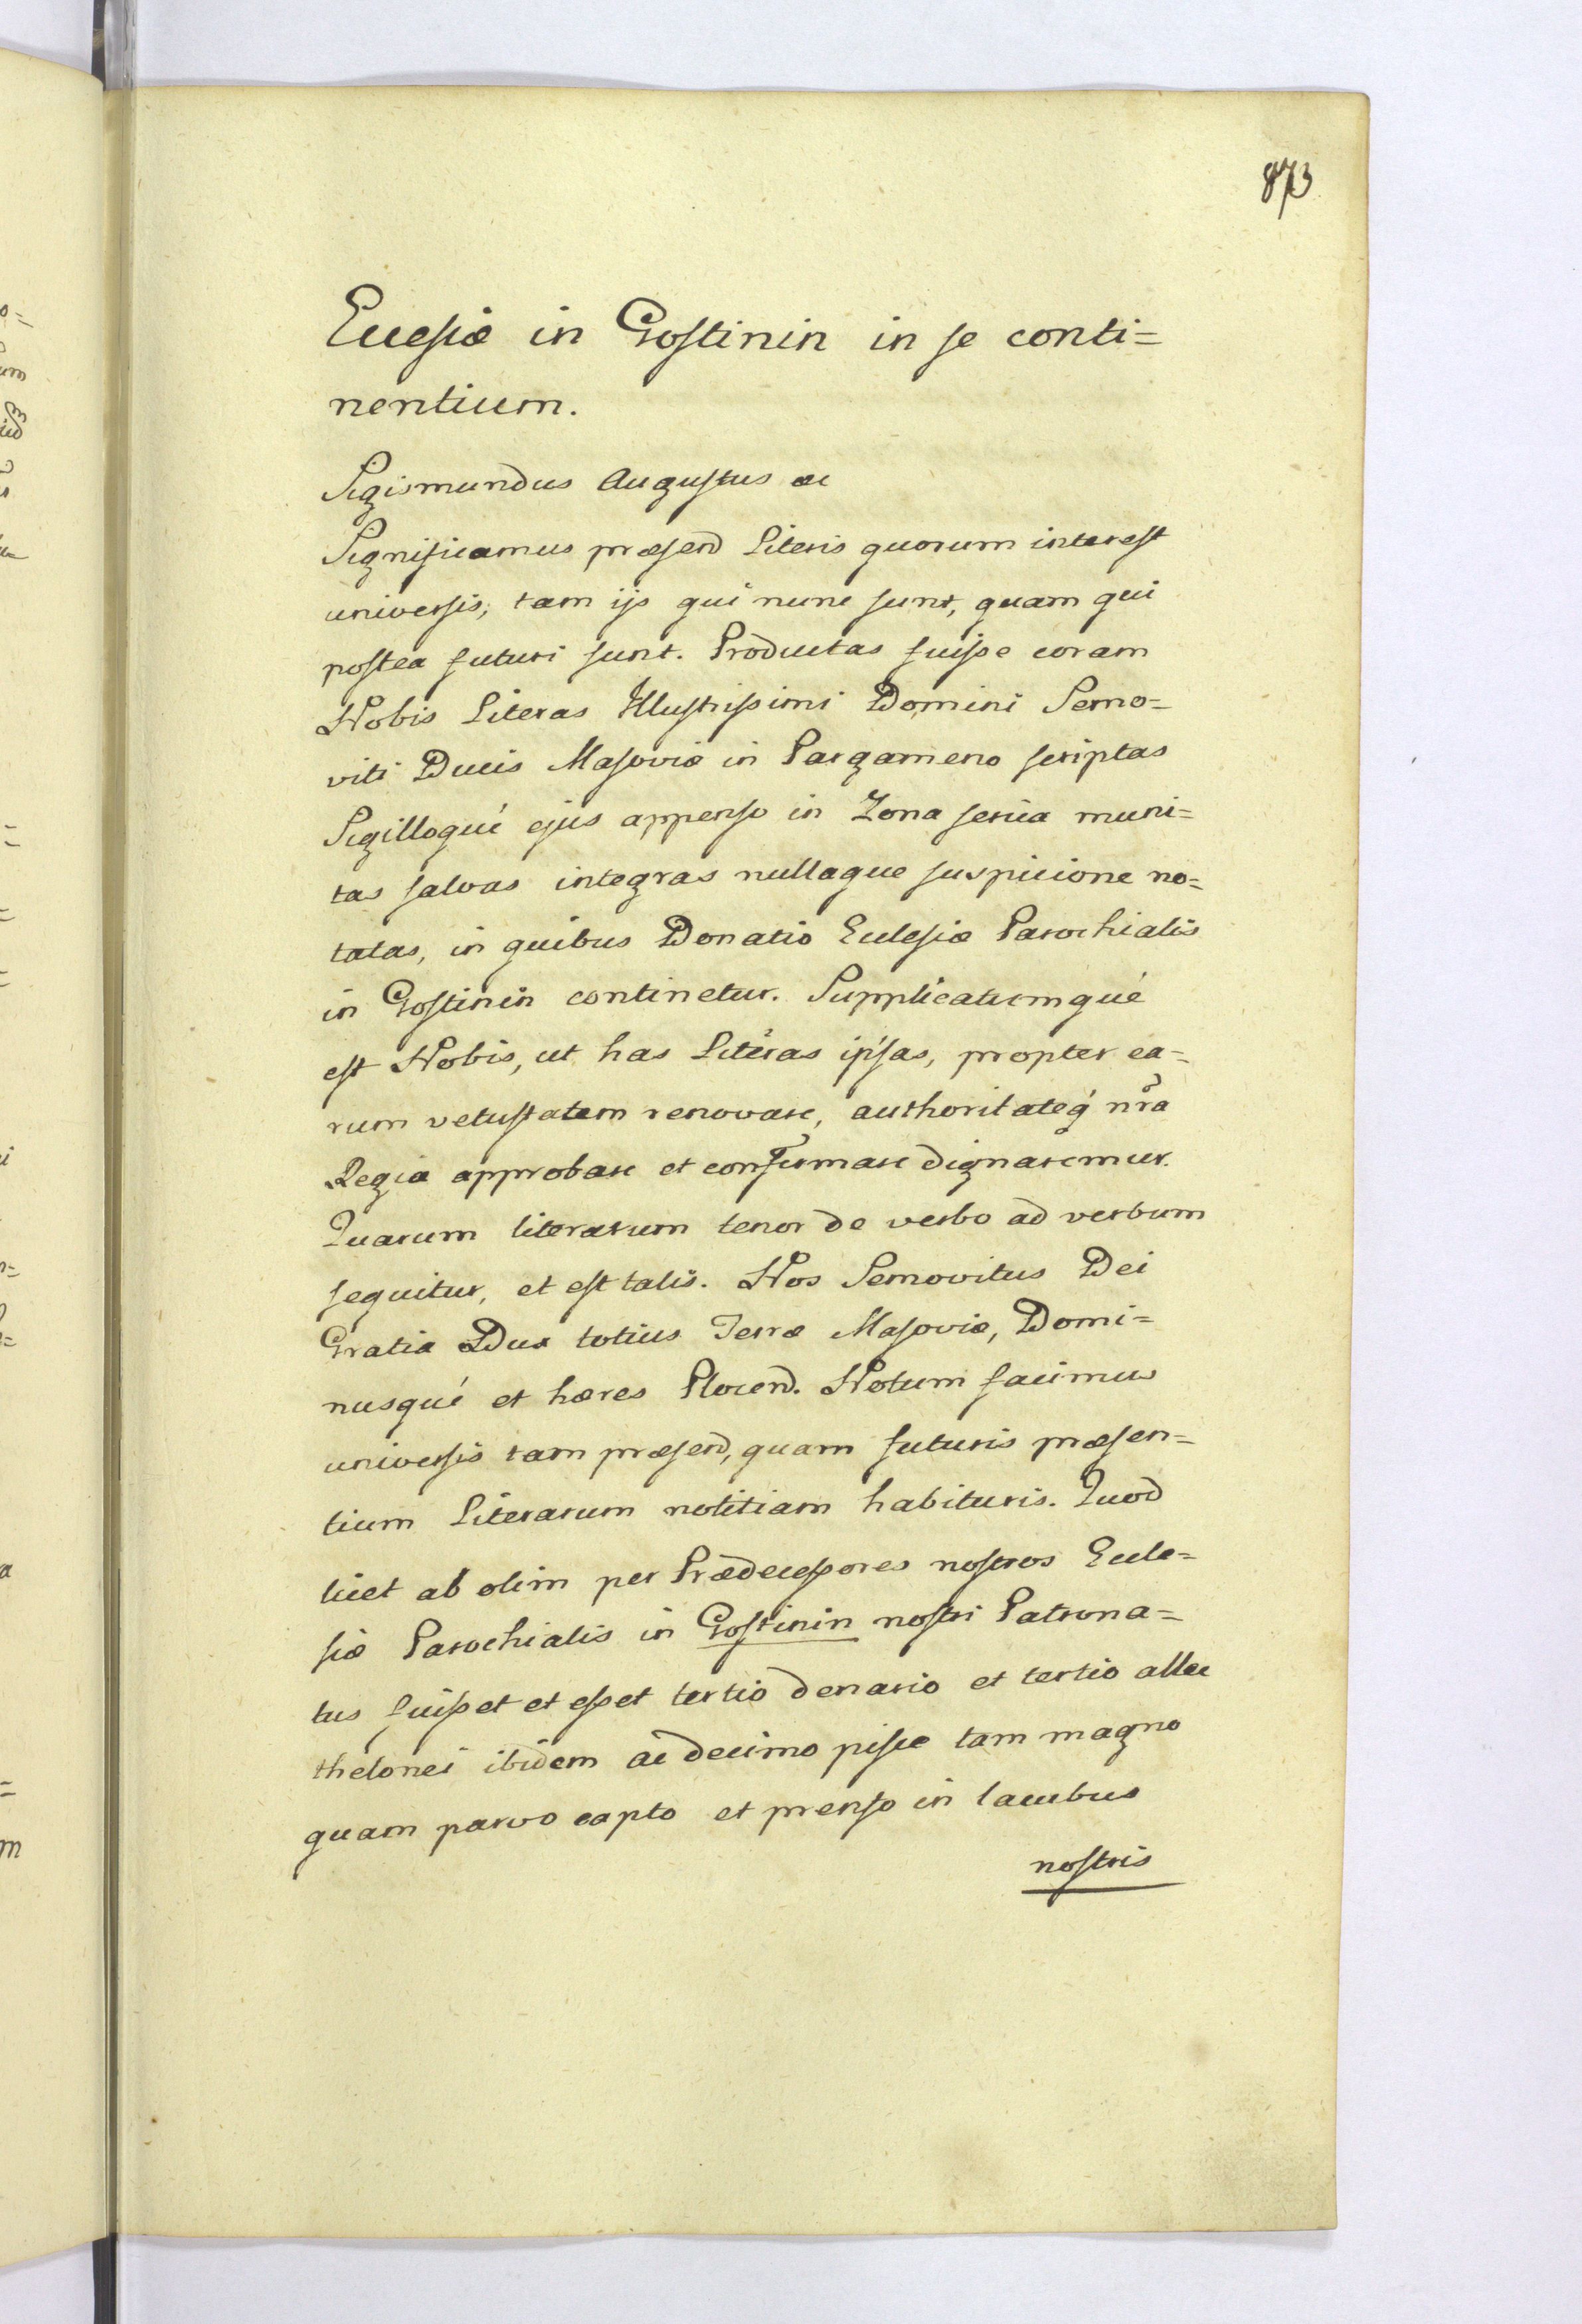 873
Ecclesiæ in Gostinin in se conti=
nentium.
Sigismundus Augustus etc
Significamus præsend Literis quorum interest
universis, tam ijs qui nunc sunt, quam qui
postea futuri sunt. Productas fuisse coram
Nobis Literas Illustrissimi Domini Semo=
viti Ducis Masoviæ in Pargameno scriptas
Sigilloqué ejus appenso in Zona sericea muni=
tas salvas integras nullaque suspicione no=
tatas, in quibus Donatio Eclesiæ Parochialis
in Gostinin continetur. Supplicatumqué
est Nobis, ut has Literas ipsas, propter ea=
rum vetustatem renovare, authoritateq́ nr̃a
Regia approbare et confirmare dignaremur.
Quarum literarum tenor de verbo ad verbum
sequitur, et est talis. Nos Semovitus Dei
Gratia Dux totius Terræ Masoviæ, Domi=
nusqué et hæres Plocend. Notum facimus
universis tam præsend, quam futuris præsen=
tium Literarum notitiam habituris. Quod
licet ab olim per Prædecessores nostros Ecle=
siæ Parochialis in Gostinin nostri Patrona=
tus fuisset et esset tertio denario et tertio allec
thelonei ibidem ac decimo pisce tam magno
quam parvo capto et prenso in lacubus
nostris